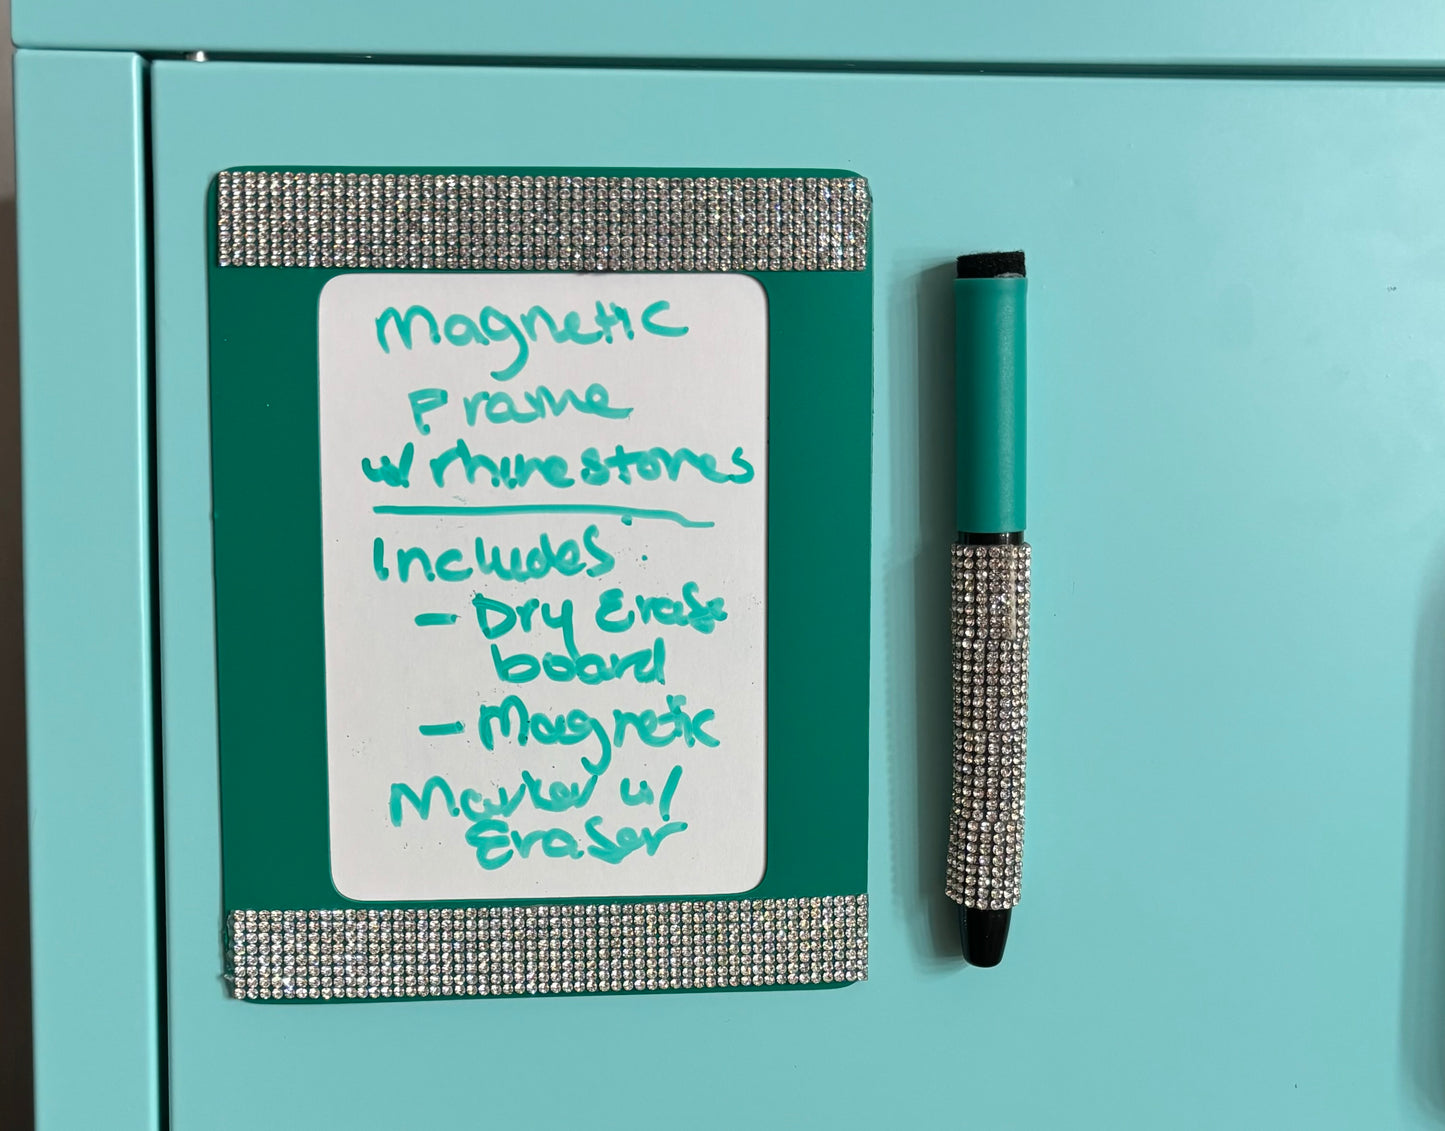 Magnetic
Frame
w/ rhinestones
Includes:
- Dry Erase
board
- Magnetic
Marker w/
Eraser